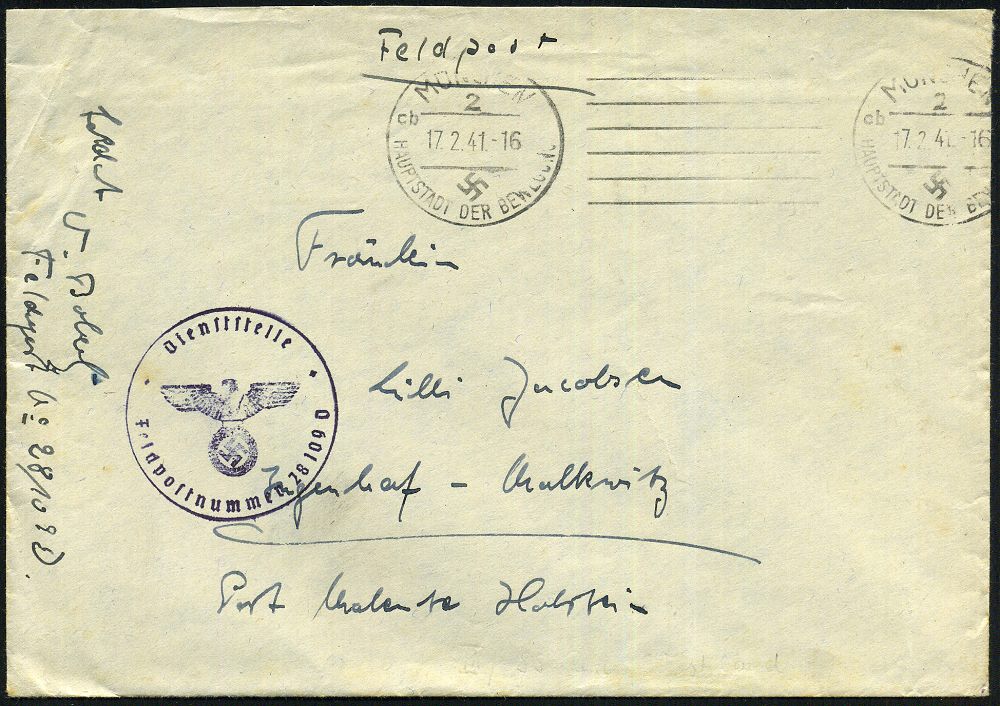 Feldpost
MÜNCHEN
2
cb
17.2.41.-16
HAUPTSTADT DER BEWEGUNG
MÜNCHEN
2
cb
17.2.41.-16
HAUPTSTADT DER BE
Fräulein
Lilli Jacobsen
Malkwitz
Post Malente Holstein
Dienststelle
Feldpostnummer 28109 D
Soldat W.
Feldpost No 28109 D.